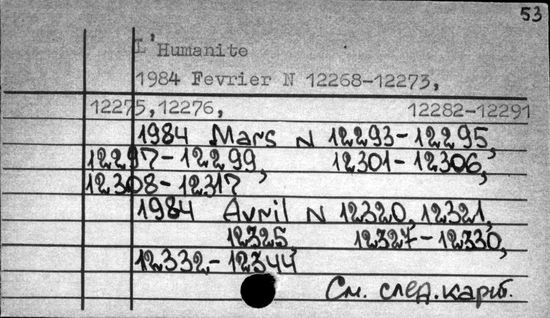 53
L'Humanite
1984 Fevrier N 12268-12273,
12275,12276, 12282-12291
1984 Mars N 12293-12295,
12297-12299, 12301-12306,
12308-12317
1984 Avril N 12320, 12321,
12325, 12327-12330,
12332-12344
См. след. карт.